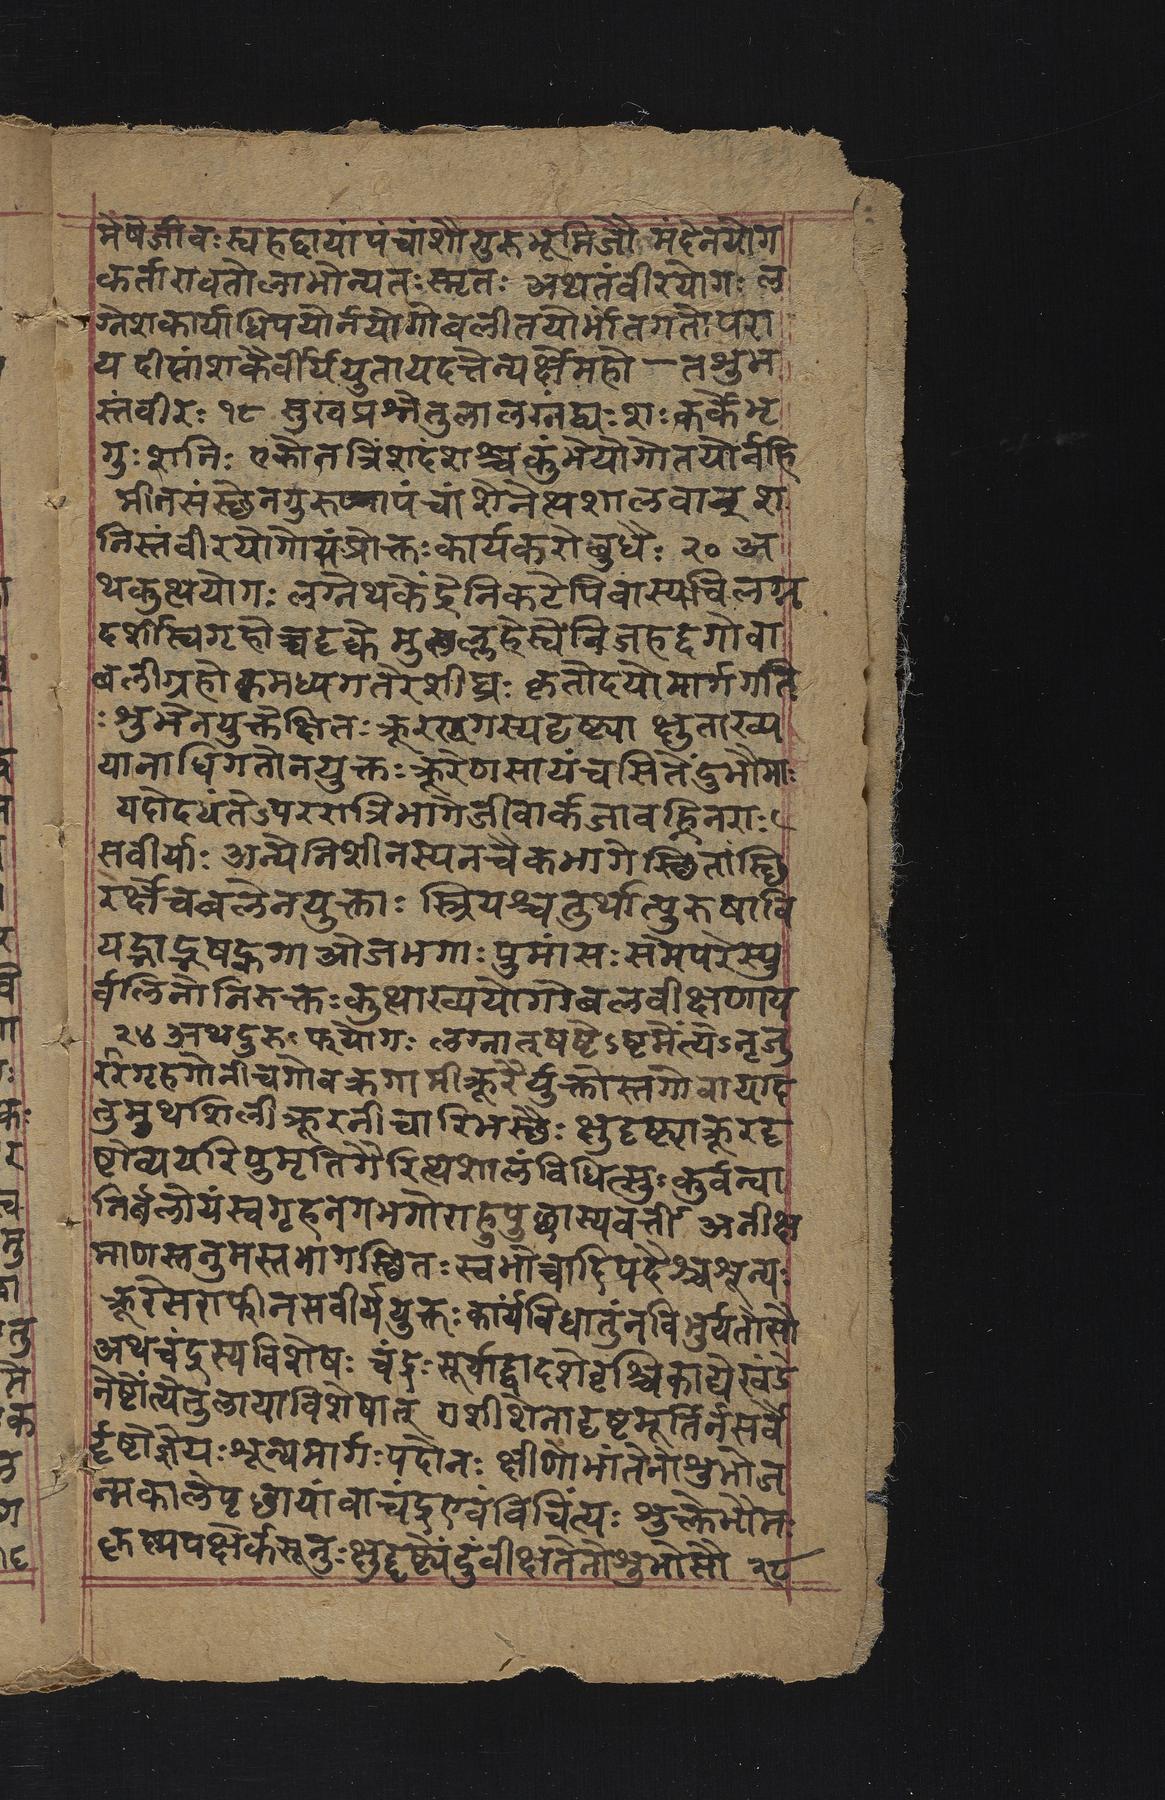 मेषेजीवःस्यहद्दायां पंचांशो गुरुभूमिजौ मंदेनयोग
कर्तारावतोलाभोन्यतःस्मृतः अथतंवीरयोगः ल
ग्नेशकार्याधिपयोर्नयोगोबलीतयोर्भांतगतोपरा
य दीप्तांशकैर्वीर्ययुतायदत्तेन्यर्क्षेमहो—तशुभ
स्तंवीरः १८ सुखप्रश्नेतुलालग्नंद्व्यःशःकर्केभृ
गुःशनिः एकोनत्रिंशदंशश्चकुंभेयोगोतयोर्नहि
मीनसंस्थेनगुरुणापंचांशेनेत्थशालवान् श
निस्तंवीरयोगोसंप्रोक्तःकार्यकरोबुधैः २० अ
थकुत्थयोगः लग्नेथकेंद्रेनिकटेपिवास्यविलग्न
दर्शीस्वगृहोच्चदृक्के मुसल्लहेस्वेनिजहद्दगोवा
बलीग्रहोमध्यगतेरशीघ्रः कृतोदयोमार्गगति
ःशुभेनयुक्तेक्षितःक्रूरखगस्यदृष्ट्या क्षुताख्य
यानाधिगतोनयुक्तःक्रूरेणसायंचसितेंदुभौमाः
यदोदयंतेऽपररात्रिभागेजीवार्कजावह्निनराः
सवीर्याः अन्येनिशीनस्यनचैकभागेस्थितास्थि
रर्क्षेचबलेनयुक्ताः स्त्रियश्चतुर्थात्पुरुषावि
यद्भाद्भूषट्कगा ओजभगाः पुमांसः समेपरेस्यु
र्बलिनोनिरुक्तःकुत्थाख्ययोगोबलवीक्षणाय
२४ अथदुरुःफयोगः लग्नात्षष्टेऽष्टमेंत्येऽनृजु
ररिगृहगोनीचगोवक्रगामीक्रूरैर्युक्तोस्तगोवायदि
तुमुथशिलीक्रूरनीचारिभस्थैः क्षुदृष्ट्याक्रूरदृ
ष्टोव्ययरिपुमृतिगैरित्थशालंविधित्सुःकुर्वन्वा
निर्बलोयंस्वगृहनगभगोराहुपुच्छास्यवर्ती अनीक्ष
माणस्तनुमस्तभागस्थितःस्वभोच्चादिपदैश्चशून्यः
क्रूरेसराफीनसवीर्ययुक्तःकार्यंविधातुंनविभुर्यतोसौ
अथचंद्रस्यविशेषः चंद्रःसूर्याद्द्वादशेवृश्चिकाद्येखंडे
नेष्टोंत्येतुलायाविशेषात् राशीशेनादृष्टमूर्तिर्नसर्वै
र्दृष्टोज्ञेयःशून्यमार्गःपदोनः क्षीणोभांतेनोशुभोज
न्मकालेपृछायांवाचंद्रएवंविचिंत्यः शुक्लेभौमः
कृष्णपक्षेर्कसूनुःक्षुद्दृष्ट्येंदुंवीक्षतेनोशुभोसौ २८